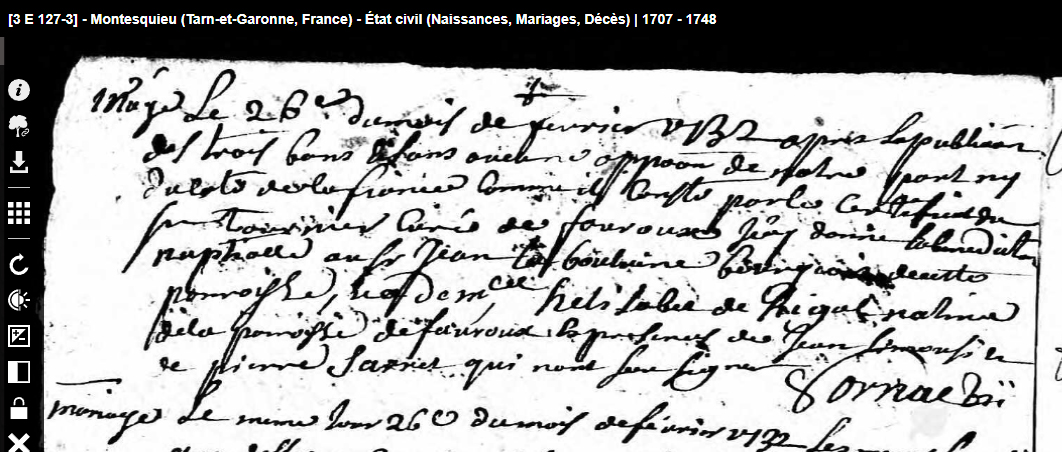 [3 E 127-3] - Montesquieu (Tarn-et-Garonne, France) - État civil (Naissances, Mariages, Décès) | 1707 - 1748
Le 26e du mois de fevrier apres la publiãon
des trois bans sans aucune de notre part ny
du coté de la fiancée comme il conste par le certificat du
sr Tournier curé de fauroux j'ay donné la benediction
nuptialle au sr Jean bourgeois de cette
parroisse, la demlle de Rigal native
de la parroisse de fauroux presences de Jean Limousin
de pierre Sarret qui n'ont seu signer
mariage Le meme jour 26e du mois de févrierr 1732 Les